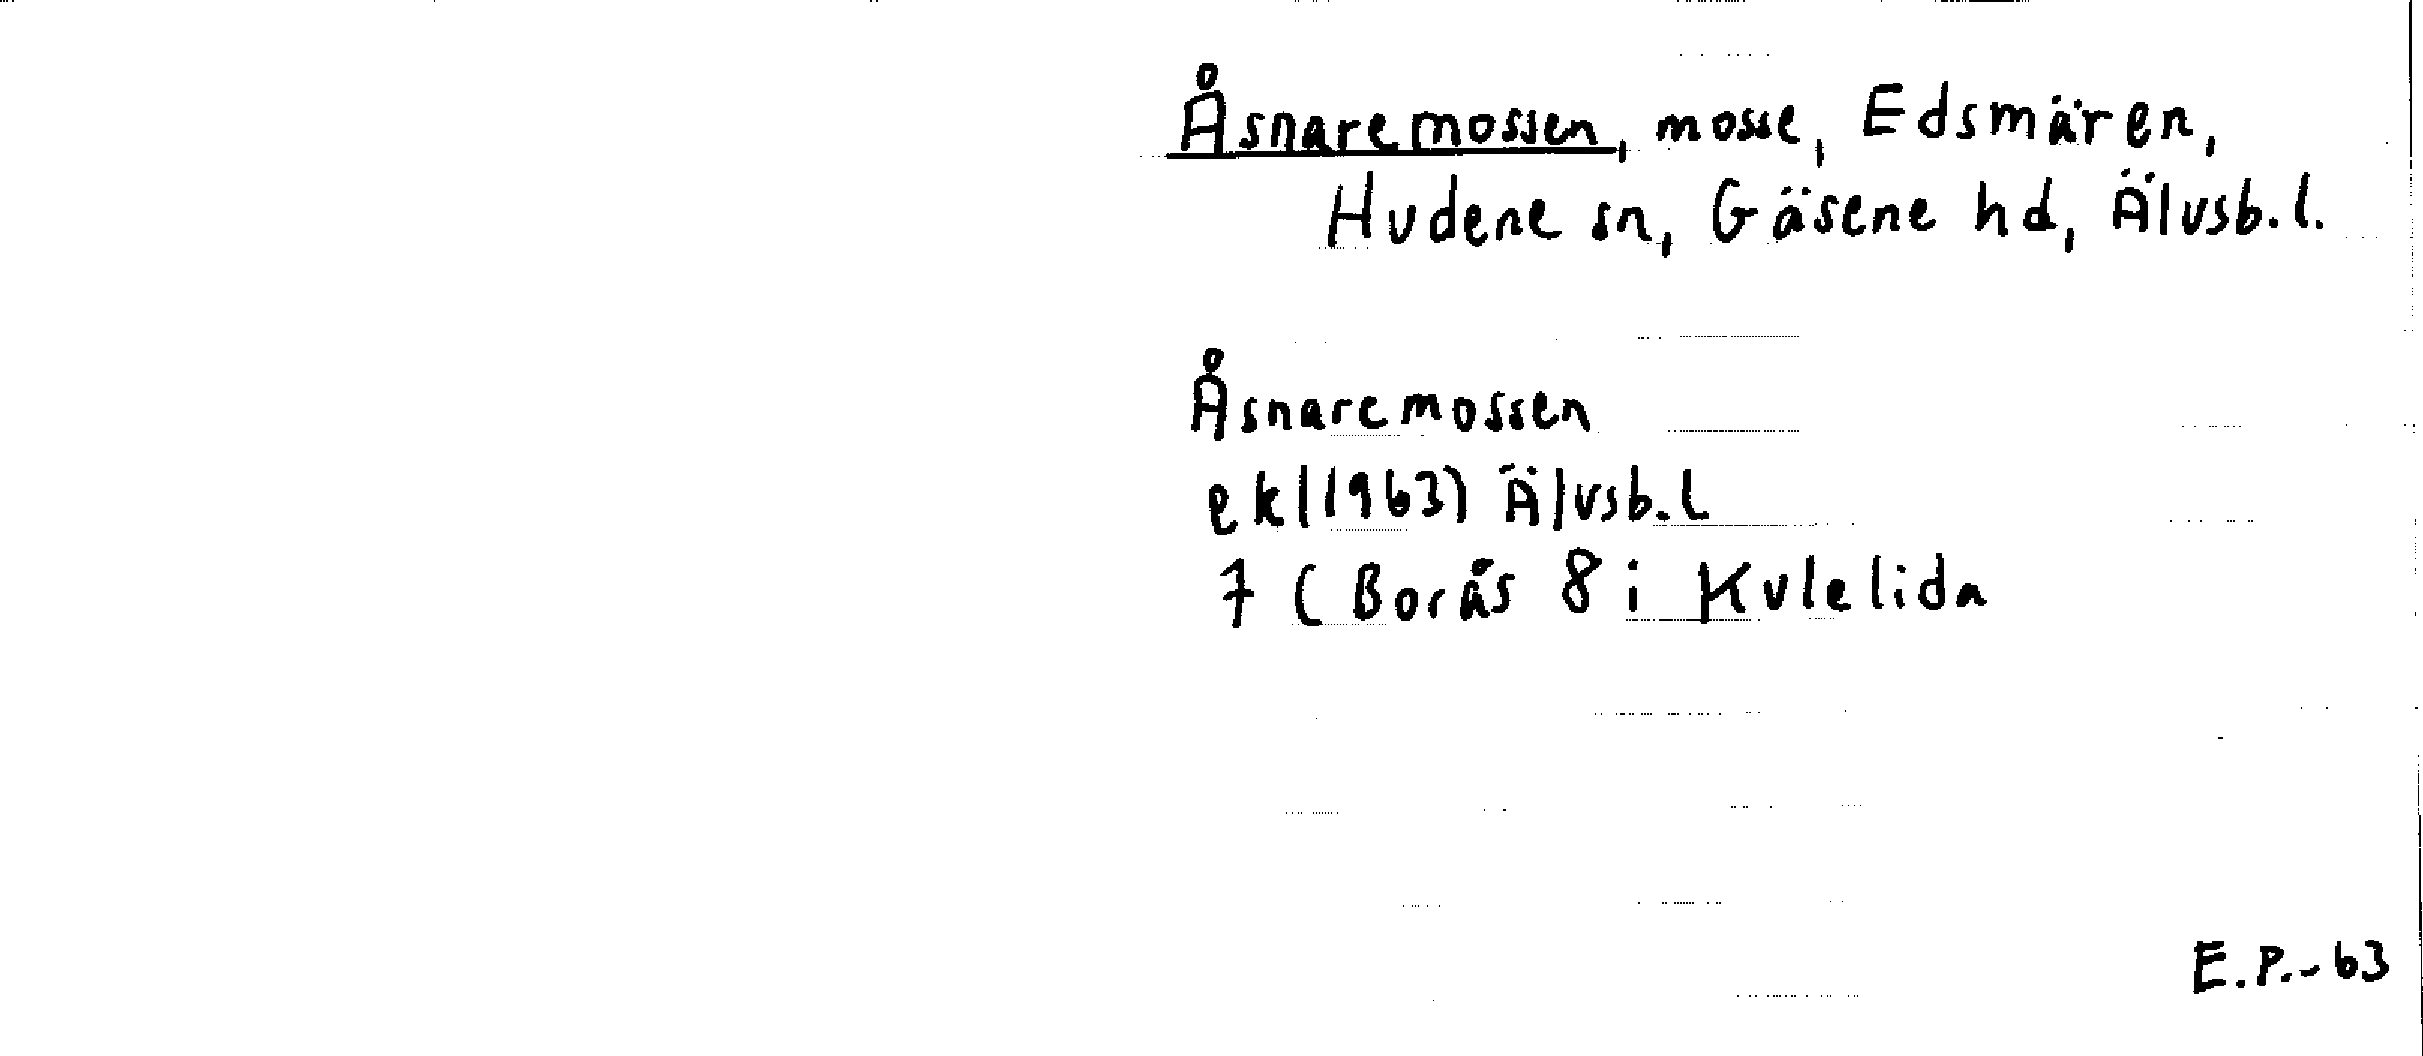 Åsnaremossen, mosse, Edsmären,
Hudene sn, Gäsene hd, Älvsb.l.
Åsnaremossen
ek(1963) Älvsb.l
7 (Borås 8 i Kulelida
E.P.-63